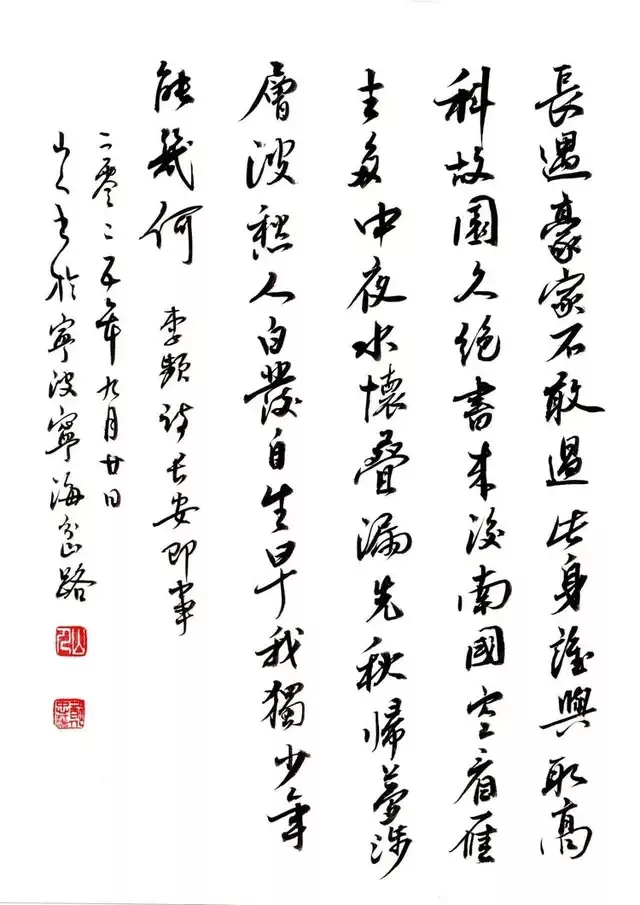 長遇豪家不敢過此身誰與取高
科故園久絕書來後南國空看雁
去多中夜永懷疊漏先秋歸夢涉
層波愁人白發自生早我獨少年
能幾何 李頻詩長安即事
二零二五年九月廿日
山人書於寧波寧海岔路